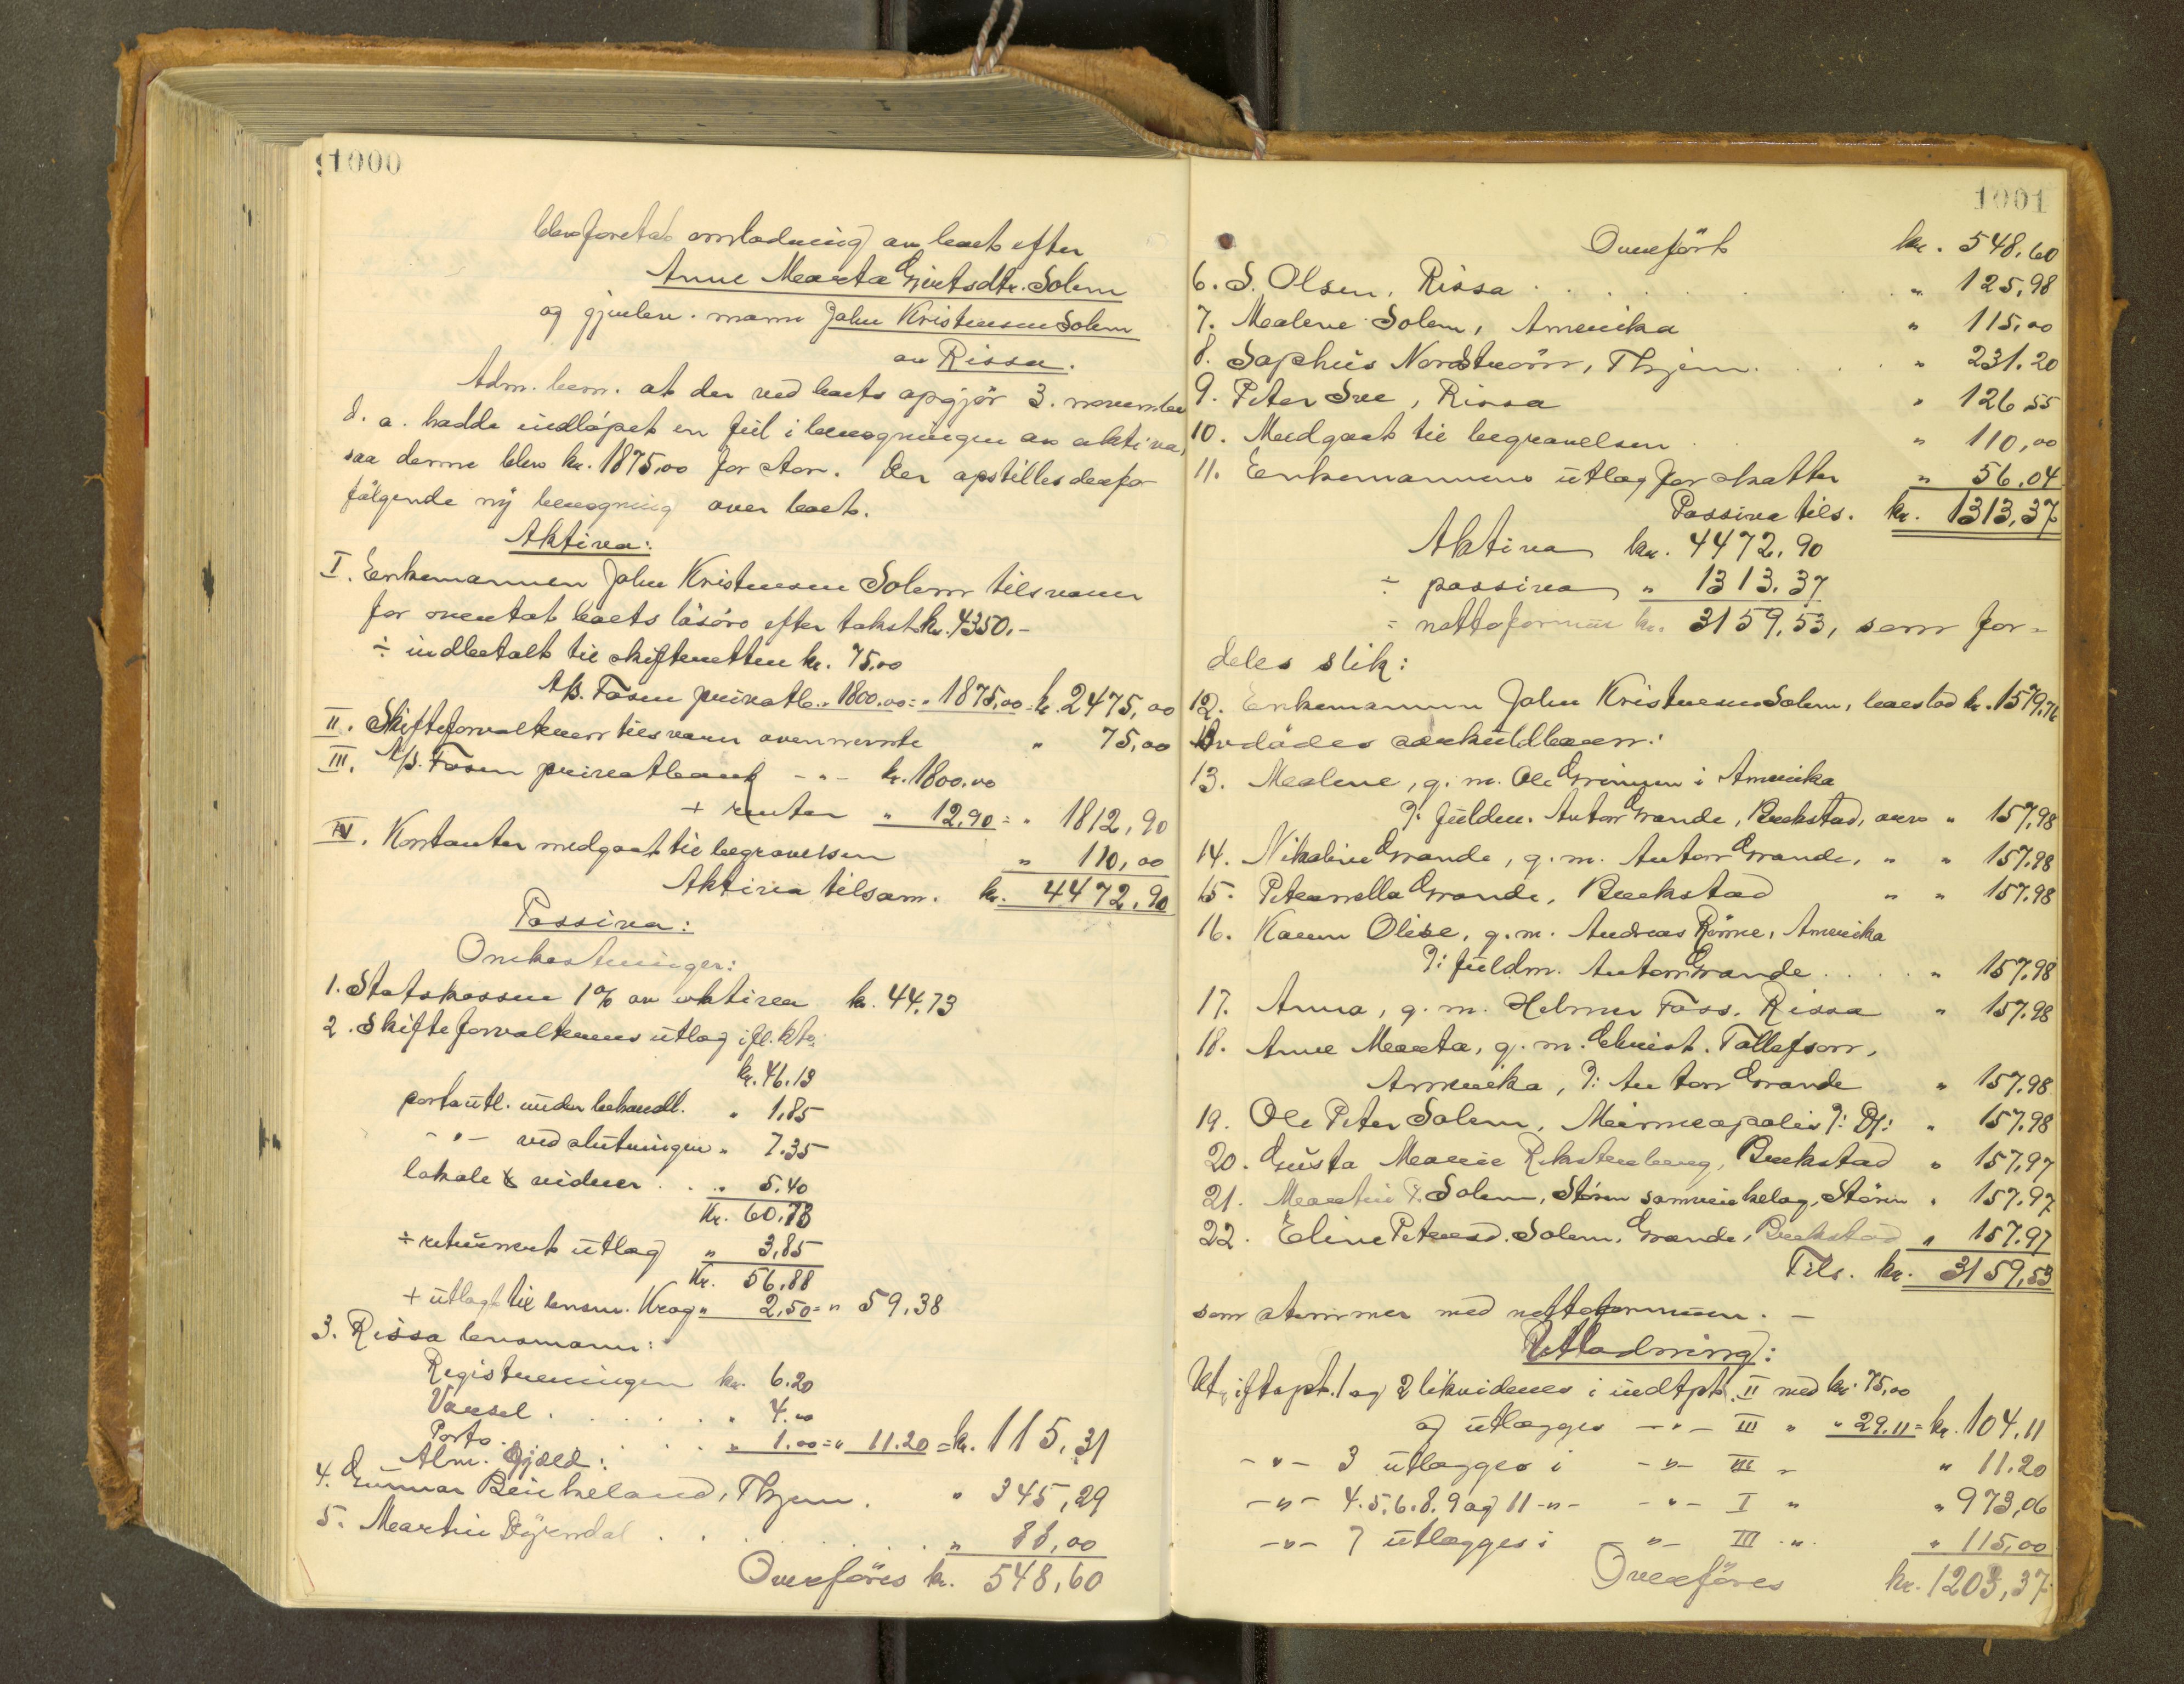 1000
blev foretat omlodning av boet efter
Anne Marta Gjertsdtr. Solem
og gjenlev. mann Johan Kristensen Solem
av Rissa.
Adm. bem. at der ved boets opgjör 3. november
d. a. hadde indlöpet en feil i beregningen av aktiva,
saa denne blev kr. 1875,00 for stor. Der opstilles derfor
fölgende ny beregning over boet.
Aktiva:
I. Enkemannen Johan Kristensen Solem tilsvarer
for overtat boets lösöre efter takst kr. 4350.-
÷ indbetalt til skifteretten kr. 75,00
A/S. Fosen privatb. " 1800.00 = " 1875,00 = kr. 2475,00
II. Skifteforvalteren tilsvarer ovennevnte " 75,00
III. A/S. Fosen privatbank -"- kr. 1800.00
+ renter " 12,90 = " 1812,90
IV. Kontanter medgaat til begravelsen " 110,00
Aktiva tilsam. kr. 4472,90
Passiva:
Omkostninger:
1. Statskassen 1% av aktiva kr. 44.73
2. Skifteforvalterens utlæg ifl. kto:
kr. 46.13
portoutl. under behandl. " 1,85
-"- ved slutningen " 7.35
lokale & vidner . . " 5.40
Kr. 60,73
÷ returnert utlæg " 3,85
Kr. 56,88
+ utlagt til lensm. Krog " 2,50 = " 59,38
3. Rissa lensmann:
Registreringen kr. 6.20
Varsel . . . . . " 4.00
Porto . . . . . " 1.00 = " 11.20 = kr. 115,31
Alm. Gjæld:
4. Gunnar Birkeland, Thjem. " 345,29
5. Martin Dyrendal . . . . . " 88,00
Overföres kr. 548,60
1001
Overfört kr. 548,60
6. S. Olsen, Rissa . . . . . " 125,98
7. Malene Solem, Amerika " 115,00
8. Sophus Nordström, Thjem. . . . " 231.20
9. Peter Sve, Rissa " 126,55
10. Medgaat til begravelsen " 110,00
11. Enkemannens utlæg for skatter " 56.04
Passiva tils. kr. 1313,37
Aktiva kr. 4472,90
÷ passiva " 1313.37
= nettoformue kr. 3159,53, som for=
deles slik:
12. Enkemannen Johan Kristensen Solem, boeslod kr. 1579,76
Avdödes særkuldbarn:
13. Malene, g. m. Ole i Amerika
?: fuldm. Anton Grande, Brekstad, arv " 157,98
14. Nikoline Grande, g. m. Anton Grande, " " 157.98
15. Peternella Grande, Brekstad " " 157.98
16. Karen Olise, g. m. Andreas Rönne, Amerika
?: fuldm. Anton Grande . . . . " 157,98
17. Anna, g. m. Helmer Foss. Rissa " 157.98
18. Anne Marta, g. m. Christ. Tollefson,
Amerika, ?: Anton Grande " 157,98
19. Ole Peter Solem, Minneapolis ?: D/: " 157,98
20. Gusta Marie Rekstenberg, Brekstad " 157,97
21. Martin P. Solem, Stören samvirkelag, Stören " 157,97
22. Eline Petersd. Solem, Grande, Brekstad " 157.97
Tils. kr. 3159,53
som stemmer med nettoformuen. -
Utlodning:
Ut. iftopt. 1 og 2 likvideres i indtpt. II med kr. 75,00
og utlægges -"- III " " 29.11 = kr. 104.11
-"- 3 utlægges i -"- III " " 11.20
-"- 4.5.6.8.9 og 11 -"- -"- I " " 973,06
-"- 7 utlægges i -"- III " " 115,00
Overföres kr. 1203,37